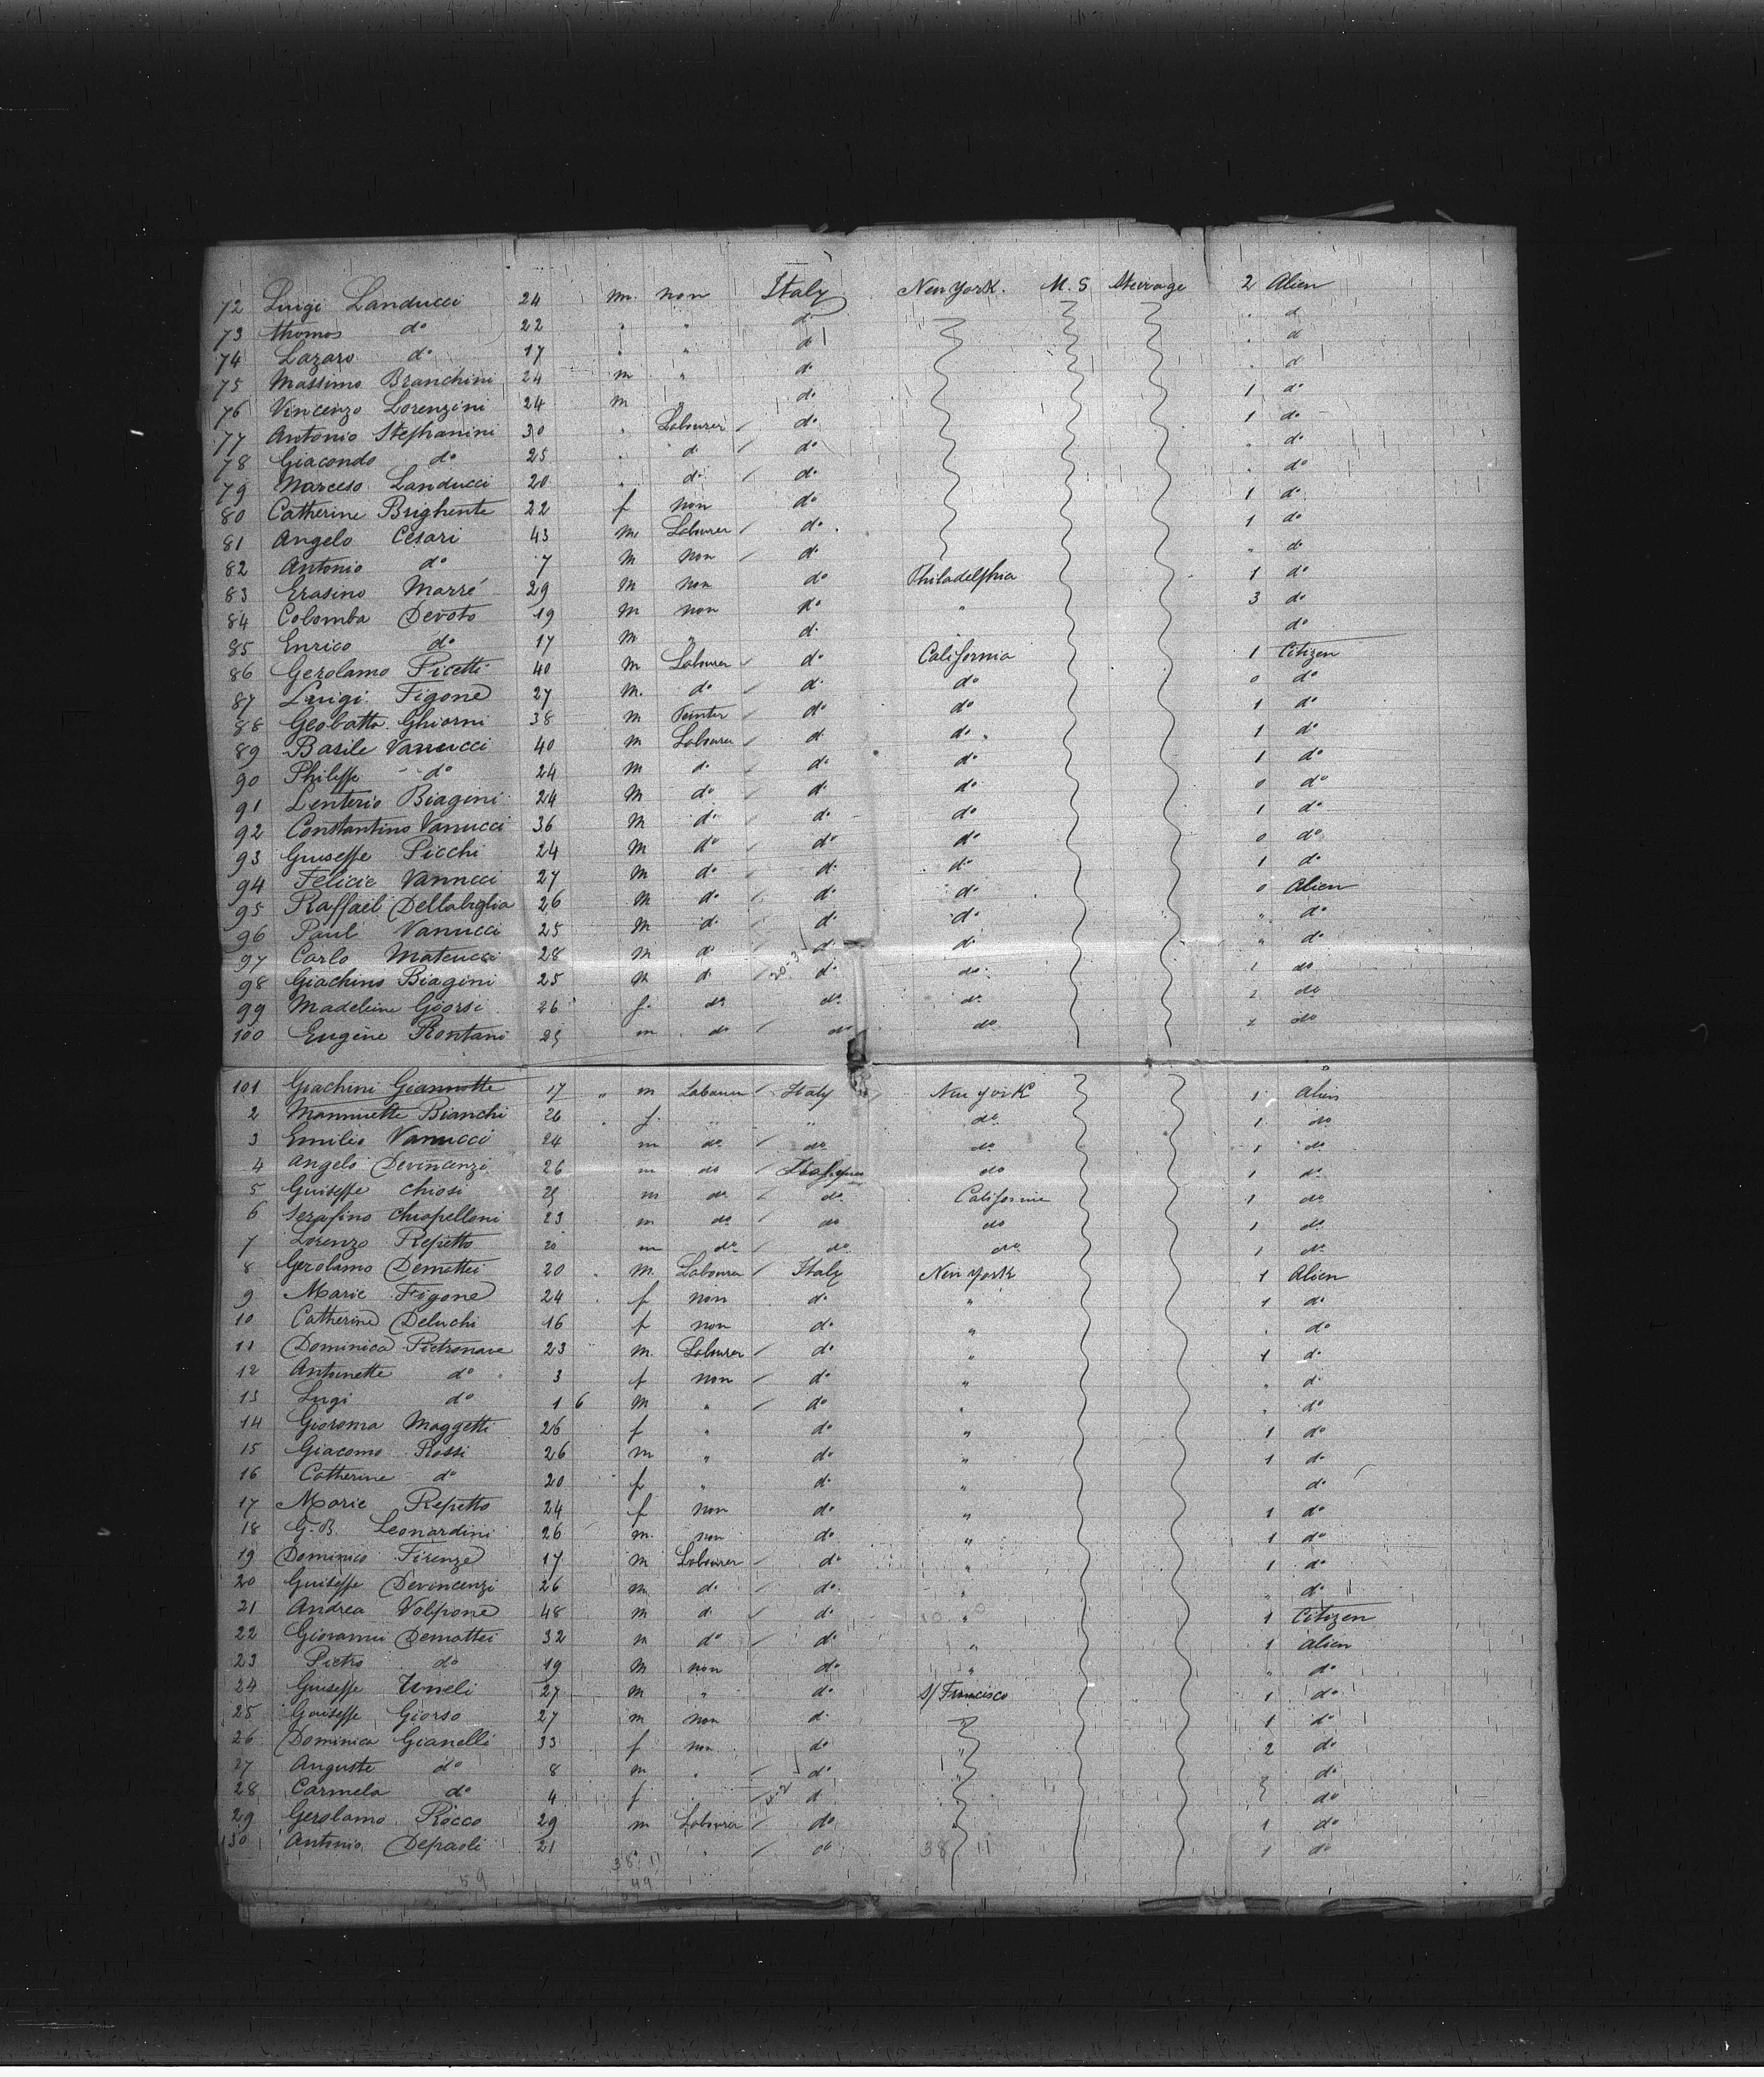 72 Luigi Landucci 24 m. non Italy New York. U.S Steerage 2 Alien
73 Thomas do 22 " " d. " d
74 Lazaro do 17 " " d. " d
75 Massimo Branchini 24 m " do " d
76 Vincenzo Lorenzini 24 m " do 1 do
77 Antonio Stephanini 30 " Labourer do 1 do
78 Giacondo do 25 " d. do " do
79 Marceso Landucci 20 " d. do " do
80 Catherine Brighente 22 f non do 1 do
81 Angelo Cesari 43 m Labourer do. 1 do
82 Antonio do 7 M non do " do
83 Erasino Marré 29 M non do Philadelphia 1 do
84 Colomba Devoto 19 M non do " 3 do
85 Enrico do 17 M " d. do
86 Gerolamo Picetti 40 M Labourer do California 1 Citizen
87 Luigi Figone 27 M. do d. do 0 do
88 Geobatta Ghiorni 38 M Peinter do do 1 do
89 Basile Vannucci 40 M Labourer d do " 1 do
90 Philippe do 24 M d. do do 1 do
91 Lenterio Biagini 24 M do d. do 0 do
92 Constantino Vanucci 36 M d. do do 1 do
93 Giuseppe Picchi 24 M do do do 0 do
94 Felicie Vannucci 27 M do d. do 1 do
95 Raffael Dellabiglia 26 M do do do 0 Alien
96 Paul Vanucci 25 M d. d. do " do
97 Carlo Mateucci 28 M d. d. do " do
98 Giachino Biagini 25 M d. 20-3 do do 1 do
99 Madeleine Giorsi 26 f. do do do 2 do
100 Eugène Rontani 25 m do do do 2 do
101 Giachini Giannotte 17 " m Labourer Italy New York 1 Alien
2 Mannuette Bianchi 26 " f. " " do 1 do
3 Emilio Vanucci 24 m do do do 1 do
4 Angelo Devincenzi 26 m do do 1 do
5 Guiseppe Chiosi 25 m do do California 1 do
6 Serafino Chiapelloni 23 m do do do 1 do
7 Lorenzo Repetto 20 m do do do 1 do
8 Gerolamo Demattei 20 M. Labourer Italy New York 1 Alien
9 Marie Figone 24 f non do " 1 do
10 Catherine Deluchi 16 f non do " . do
11 Dominica Pietronave 23 m. Labourer do " 1 do
12 Antoinette do 3 f non do " " d.
13 Lugi do 1 6 M " do " " do
14 Gioroma Maggetti 26 f " do " 1 do
15 Giacomo Rossi 26 m " do " 1 do
16 Catherine do 20 f " d. " do
17 Marie Repetto 24 f non do " 1 do
18 G.B. Leonardini 26 m. non do " 1 do
19 Dominico Firenze 17 m Labourer do " 1 do
20 Guiseppe Devincenzi 26 m d. do " " do
21 Andrea Volpone 48 m d. do " 1 Citizen
22 Giovanni Demattei 32 m do do " 1 Alien
23 Pietro do 19 M non do " " do
24 Giuseppe Tuneli 27 m " do S/ Francisco 1 do
25 Guiseppe Giorso 27 m non d. 1 do
26 Dominica Gianelli 33 f non do " 2 do
27 Auguste do 8 m " do " do
28 Carmela do 4 f d do
29 Gerolamo Rocco 29 m Labourer do 1 do
130 Antonio Depaoli 21 " " do 38 11 1 do
59 38 11
49